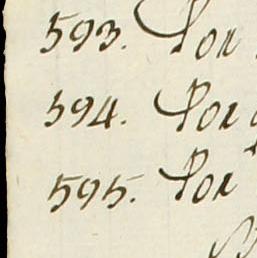 593. Por
594. Por
595. Por